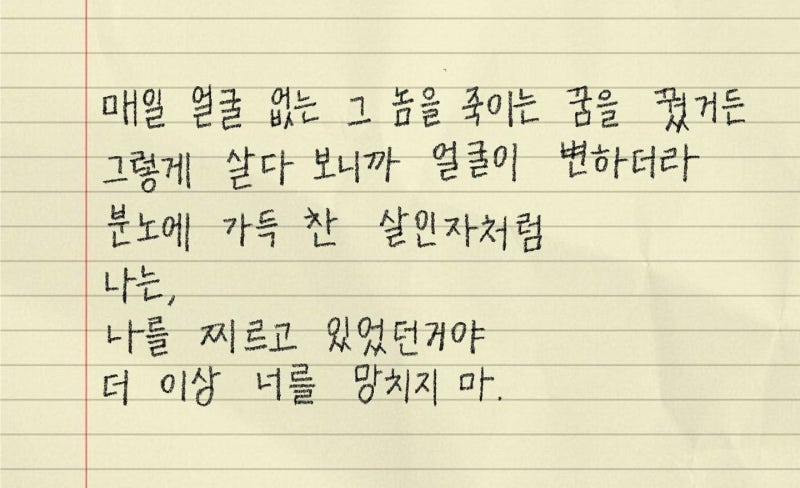 매일 얼굴 없는 그 놈을 죽이는 꿈을 꿨거든
그렇게 살다 보니까 얼굴이 변하더라
분노에 가득 찬 살인자처럼
나는,
나를 찌르고 있었던거야
더 이상 너를 망치지 마.